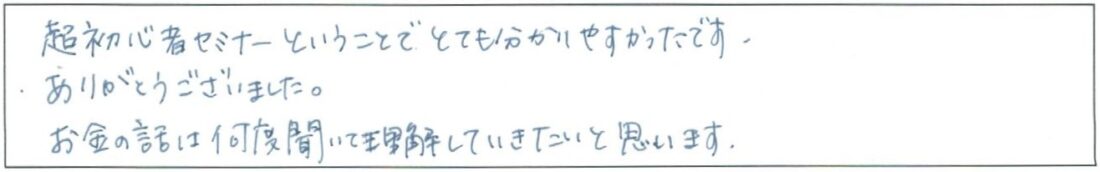 超初心者セミナーということでとても分かりやすかったです.
ありがとうございました。
お金の話は何度聞いて理解していきたいと思います.